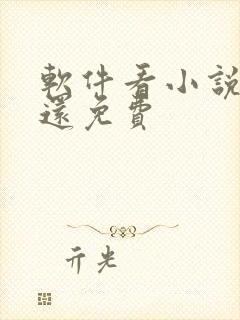 軟件看小說
還免費
亓光